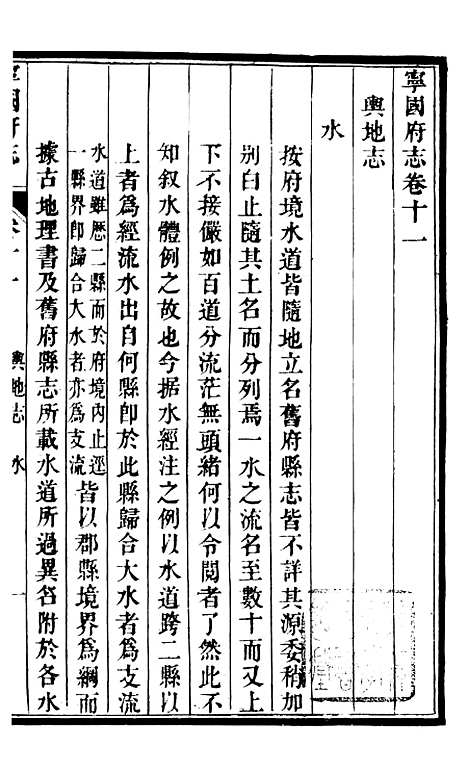 寧國府志卷十一
輿地志
水
按府境水道皆隨地立名舊府縣志皆不詳其源委稍加
别白止隨其土名而分列焉一水之流名至數十而又上
下不接儼如百道分流茫無頭緒何以令閱者了然此不
知叙水體例之故也今据水經注之例以水道跨二縣以
上者爲經流水出自何縣卽於此縣歸合大水者爲支流
水道雖歷二縣而於府境內止逕
一縣界卽歸合大水者亦爲支流
皆以郡縣境界爲綱而
據古地理書及舊府縣志所載水道所過異名附於各水
寧國府志
卷十一
輿地志 水
一